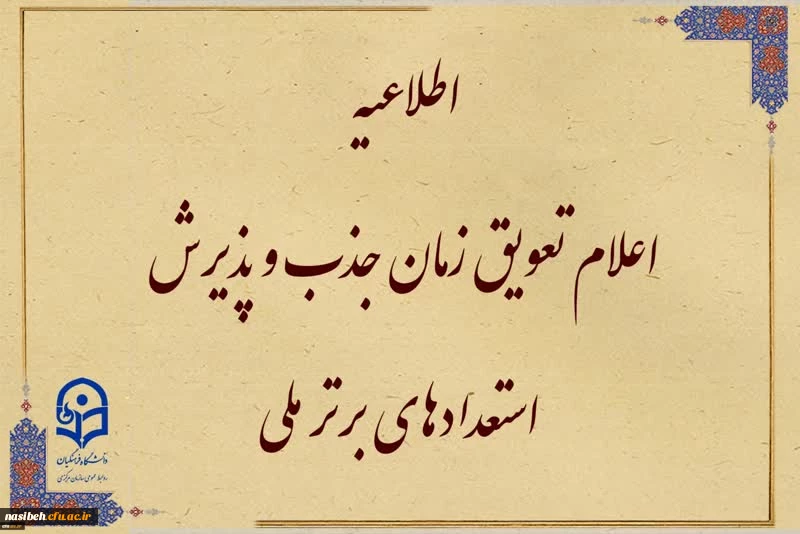 اطلاعیه
اعلام تعویق زمان جذب و پذیرش
استعدادهای برتر ملی
دانشگاه فرهنگیان
روابط عمومی سازمان مرکزی
nasibeh.cfu.ac.ir